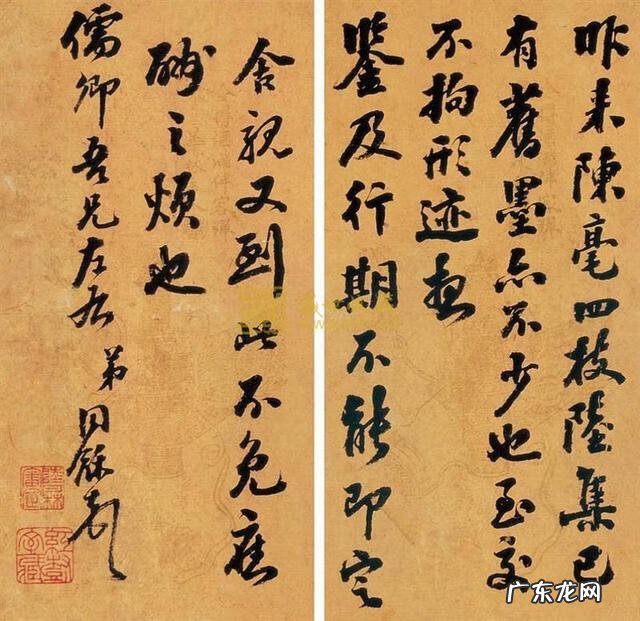 昨来陳毫四枝陸集已
有舊墨亦不少也至交
不拘形迹想
鑒及行期不能即定
舍親又到此不免應
酬之煩也
儒卿吾兄左右 弟同龢頓
广东龙网